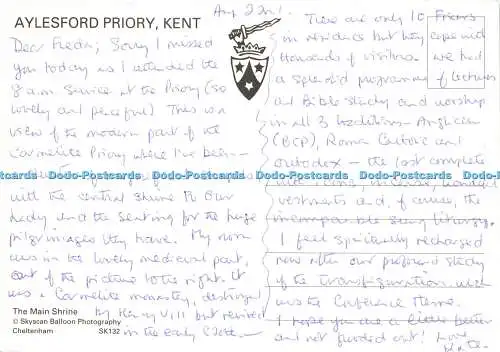 AYLESFORD PRIORY, KENT
Aug 22nd.
Dear Freda; Sorry I missed
you today as I attended the
8 a.m. Service at the Priory (so
lovely and peaceful) This is a
view of the modern part of the
Carmelite Priory where I've been –
with the central shrine to Our
Lady and the seating for the huge
pilgrimages they have. My room
was in the lovely medieval part,
out of the picture to the right. It
was a Carmelite monastery, destroyed
by Henry VIII but revived
in the early
The Main Shrine
© Skyscan Balloon Photography
Cheltenham SK132
There are only 10 Friars
in residence but they cope with
thousands of visitors. We had
a splendid programme of lectures
and Bible Study and worship
in all 3 traditions – Anglican
(BCP), Roman Catholic and
Orthodox – the last complete
with incense,
vestments and, of course, the
incomparable sung liturgy.
I feel spiritually recharged
now after our profound study
of the Transfiguration which
was the Conference theme.
I hope you are a little better
and not flooded out! Love
Dodo-Postcards Dodo-Postcards Dodo-Postcards Dodo-Postcards Dodo-Postcards Dodo-Postcards